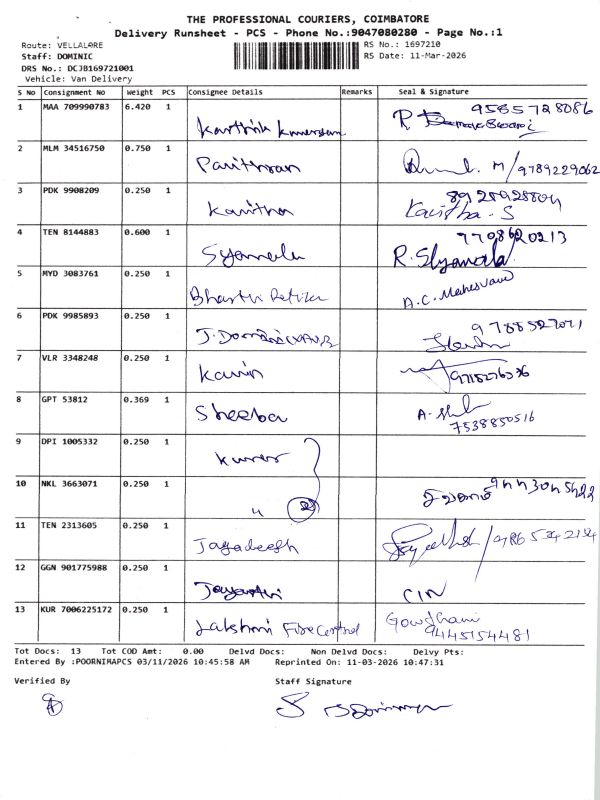 THE PROFESSIONAL COURIERS, COIMBATORE
Delivery Runsheet - PCS - Phone No.:9047080280 - Page No.:1
Route: VELLALORE RS No.: 1697210
Staff: DOMINIC RS Date: 11-Mar-2026
DRS No.: DCJB169721001
Vehicle: Van Delivery
S No Consignment No Weight PCS Consignee Details Remarks Seal & Signature
1 MAA 709990783 6.420 1 Karthik 9585728086
2 MLM 34516750 0.750 1 Pavithran M/9789229062
3 PDK 9908209 0.250 1 Kavitha Kavitha-S
4 TEN 8144883 0.600 1 Syamala 9708620213 R. Shyamala
5 MYD 3083761 0.250 1 Bharthi A.C. Maheswari
6 PDK 9985893 0.250 1 J. 9788527071
7 VLR 3348248 0.250 1 Kavin 9715276336
8 GPT 53812 0.369 1 Sheeba A. 7538850516
9 DPI 1005332 0.250 1
10 NKL 3663071 0.250 1 "
11 TEN 2313605 0.250 1 Jayadeesh
12 GGN 901775988 0.250 1 Jayanthi
13 KUR 7006225172 0.250 1 Lakshmi Fire Control Gowdhami 9445154481
Tot Docs: 13 Tot COD Amt: 0.00 Delvd Docs: Non Delvd Docs: Delvy Pts:
Entered By :POORNIMAPCS 03/11/2026 10:45:58 AM Reprinted On: 11-03-2026 10:47:31
Verified By Staff Signature